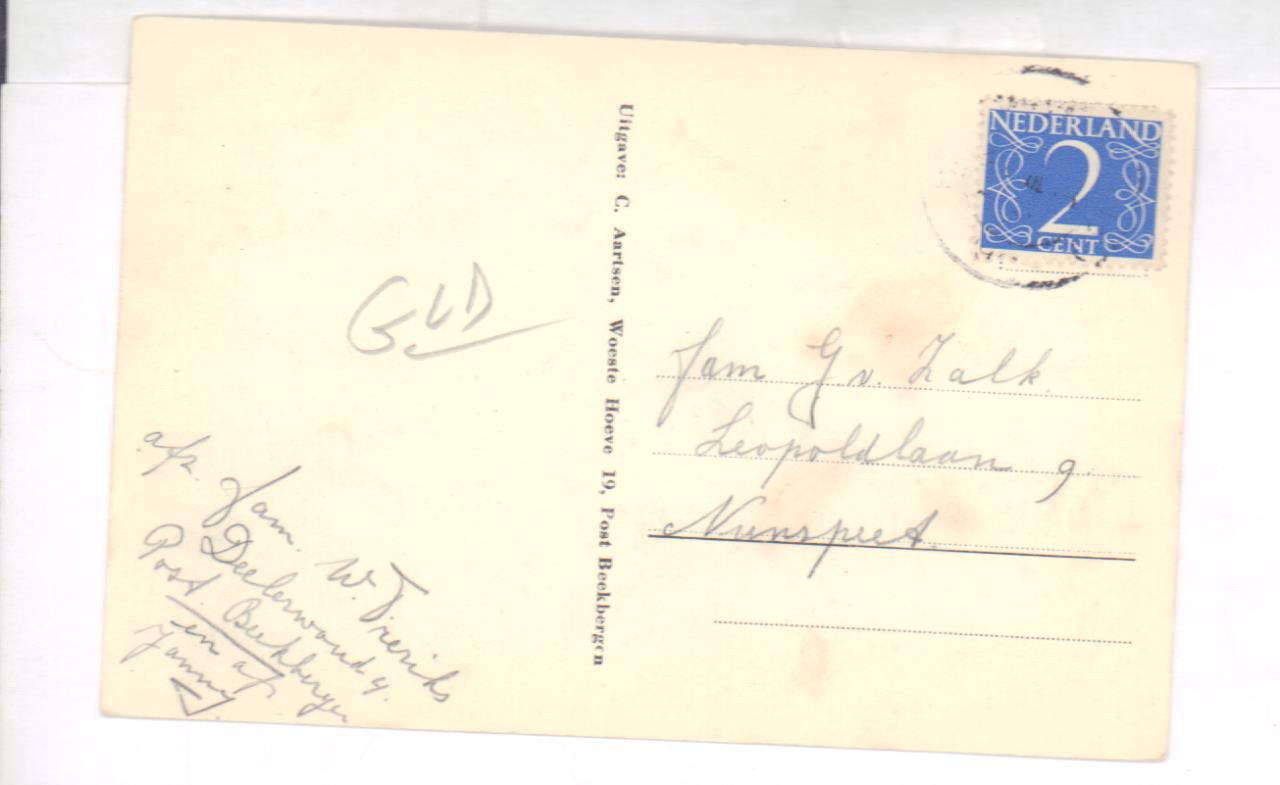 NEDERLAND
2
CENT
Uitgave: C. Aartsen, Woeste Hoeve 19, Post Beekbergen
GLD
Fam G. v. Zalk.
Leopoldlaan 9.
Nunspeet.
afz. Fam. W. Freriks
Deelerwoud 4.
Post. Beekbergen
en af
Janny